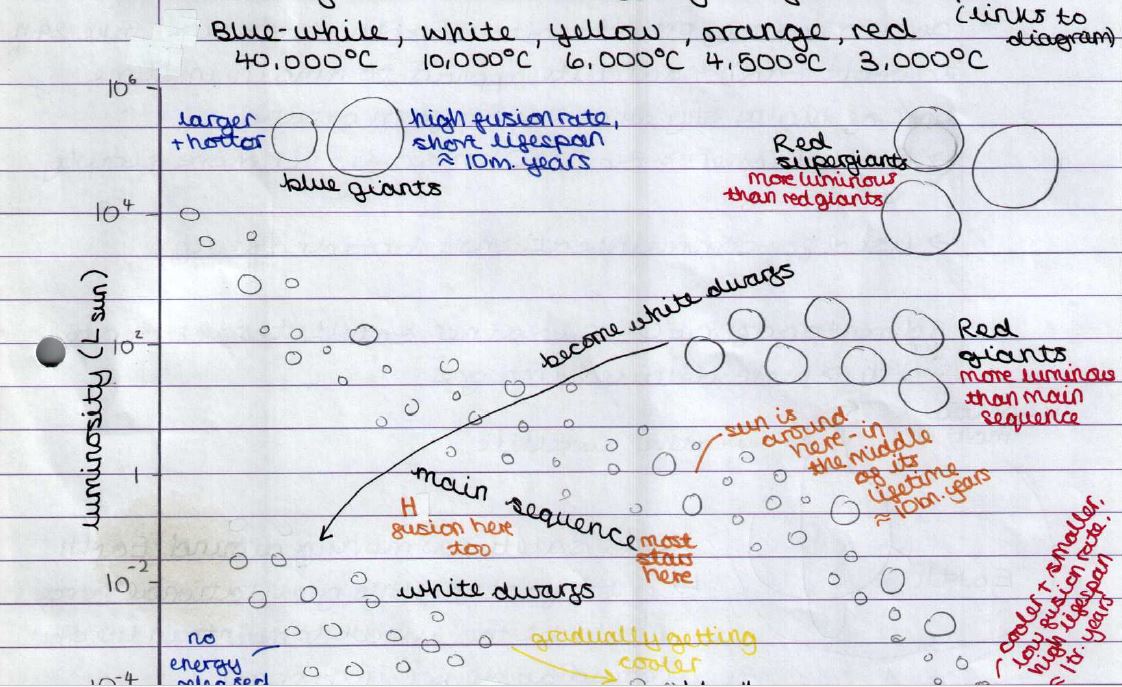 (links to
diagram)
Blue-white, white, yellow, orange, red
40,000°C 10,000°C 6,000°C 4,500°C 3,000°C
10⁶
larger
+ hotter
high fusion rate,
short lifespan
≈ 10m. years
blue giants
Red
supergiants
more luminous
than red giants
10⁴
luminosity (L sun)
become white dwarfs
10²
Red
giants
more luminous
than main
sequence
sun is
around
here - in
the middle
of its
lifetime
≈ 10m. years
1
main sequence
H
fusion here
too
most
stars
here
10⁻²
white dwarfs
cooler + smaller,
low fusion rate,
high lifespan
≈ 1tr. years
no
energy
released
gradually getting
cooler
10⁻⁴